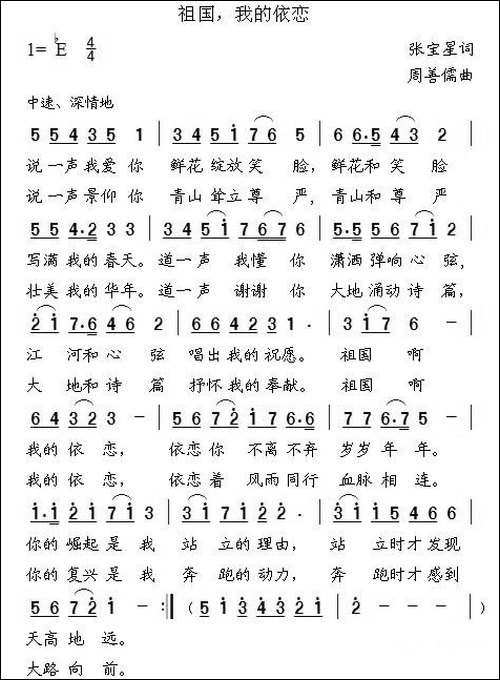 祖国，我的依恋
1= ♭E 4/4
张宝星词
周善儒曲
中速、深情地
5 5 4 3 5 1 | 3 4 5 i 7 6 5 | 6 6·5 4 3 2
说一声我爱你 鲜花绽放笑 脸，鲜花和笑脸
说一声景仰你 青山耸立尊 严，青山和尊严
5 5 4·2 3 3 | 3 4 5 i 7 6 7 6 | 5·5 5 6 7 i 2
写满我的春天。道一声 我懂 你 潇洒弹响心弦，
壮美我的华年。道一声 谢谢 你 大地涌动诗篇，
2 i 7·6 4 6 2 | 6 6 4 2 3 2 3 | 3 i 7 6 －
江 河和心 弦 唱出我的祝愿。 祖国 啊
大 地和诗 篇 抒怀我的奉献。 祖国 啊
6 4 3 2 3 － | 5 6 7 2 i 7 i 6·6 | 7 7 6·7 5 －
我的 依 恋， 依恋你 不离不弃 岁岁 年 年。
我的 依 恋， 依恋着 风雨同行 血脉 相 连。
i·i 2 i 7 i 3 | 3 i 7 i 2 2· | 3 i i 5 4 6 6
你的 崛起 是 我 站 立的理由， 站 立时才发现
你的 复兴 是 我 奔 跑的动力， 奔 跑时才感到
5 6 7 2 i － :‖ (5 i 3 4 3 2 i | 2 － － － | i － － －)
天高 地 远。
大路 向 前。